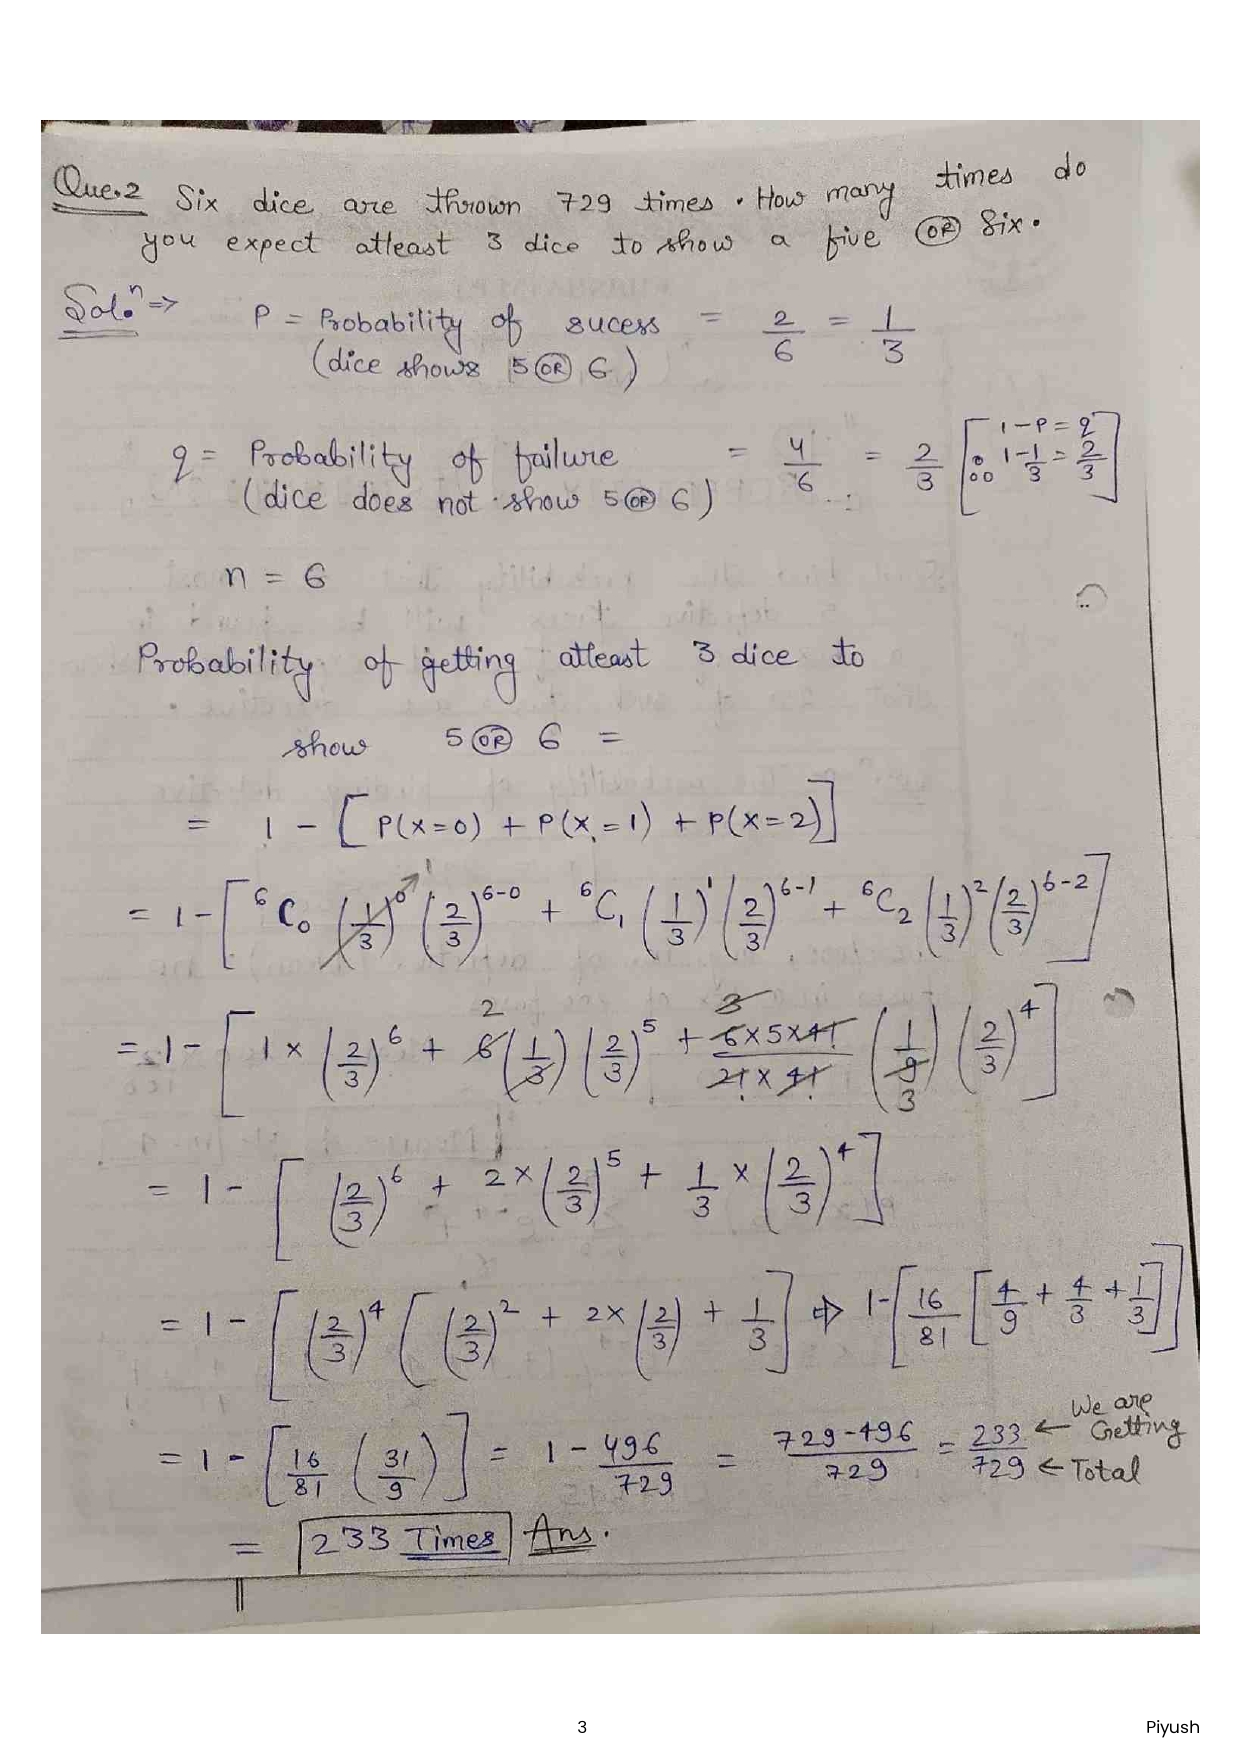 Que.2 Six dice are thrown 729 times. How many times do
you expect atleast 3 dice to show a five OR Six.
Sol.ⁿ => P = Probability of sucess = 2/6 = 1/3
(dice shows 5 OR 6)
q = Probability of failure = 4/6 = 2/3 [1-P = q ∴ 1-1/3 = 2/3]
(dice does not show 5 OR 6)
n = 6
Probability of getting atleast 3 dice to
show 5 OR 6 =
= 1 - [P(x=0) + P(x=1) + P(x=2)]
= 1 - [⁶C₀ (1/3)⁰ (2/3)⁶⁻⁰ + ⁶C₁ (1/3)¹ (2/3)⁶⁻¹ + ⁶C₂ (1/3)² (2/3)⁶⁻²]
= 1 - [1 × (2/3)⁶ + 6 (1/3) (2/3)⁵ + (6×5×4!)/(2!×4!) (1/9) (2/3)⁴]
= 1 - [(2/3)⁶ + 2 × (2/3)⁵ + 1/3 × (2/3)⁴]
= 1 - [(2/3)⁴ ((2/3)² + 2× (2/3) + 1/3] ⇒ 1-[16/81 [4/9 + 4/3 + 1/3]]
= 1 - [16/81 (31/9)] = 1 - 496/729 = (729-496)/729 = 233/729 ← We are Getting ← Total
= 233 Times Ans.
3 Piyush